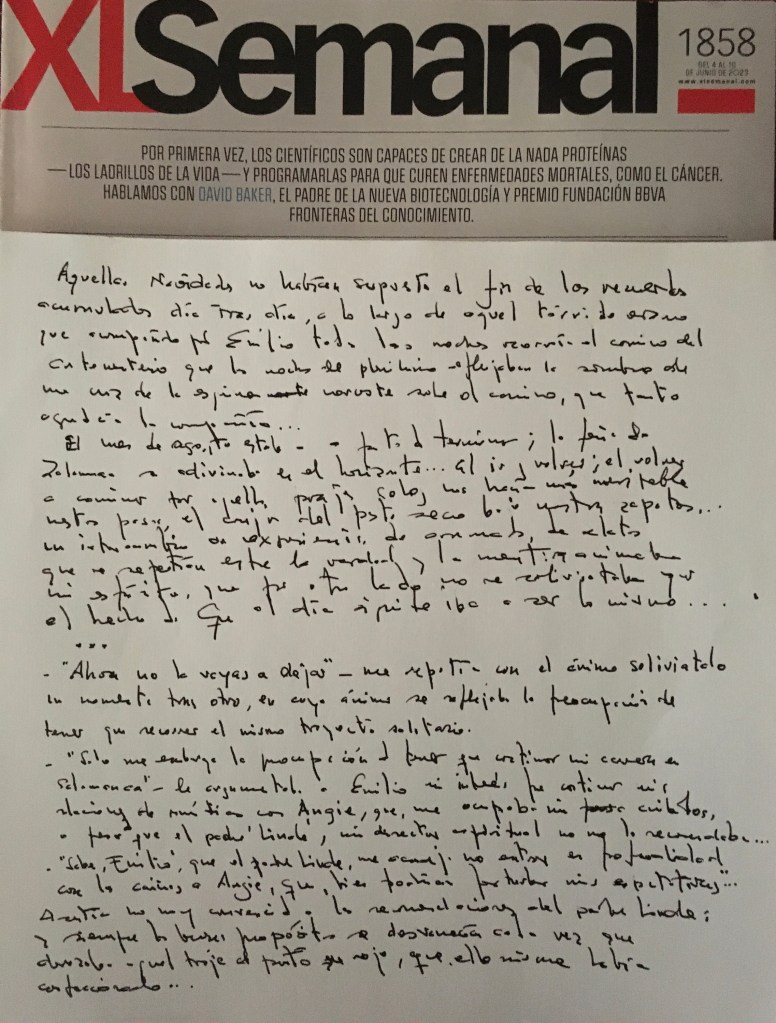 XLSemanal
1858
DEL 4 AL 10
DE JUNIO DE 2023
www.xlsemanal.com
POR PRIMERA VEZ, LOS CIENTÍFICOS SON CAPACES DE CREAR DE LA NADA PROTEÍNAS
—LOS LADRILLOS DE LA VIDA— Y PROGRAMARLAS PARA QUE CUREN ENFERMEDADES MORTALES, COMO EL CÁNCER.
HABLAMOS CON DAVID BAKER, EL PADRE DE LA NUEVA BIOTECNOLOGÍA Y PREMIO FUNDACIÓN BBVA
FRONTERAS DEL CONOCIMIENTO.
Aquellas Navidades no habían supuesto el fin de los recuerdos
acumulados día tras día, a lo largo de aquel tórrido verano
que acompañado por Emilio todas las noches recorría el camino del
que las noches de plenilunio reflejaban la sombra de
una cruz de la sobre el camino, que tanto
la
El mes de agosto estaba a punto de terminar; la
Salamanca se adivinaba en el horizonte... al ir y volver; el volver
a caminar por aquella
nuestros pasos, el crujir del pasto seco bajo nuestros zapatos...
un intercambio de experiencias, de de relatos
que se repetían entre la verdad y la mentira animaba
mi espíritu, que por otro lado no se
el hecho de que el día siguiente iba a ser lo mismo....
...
- "Ahora no la vayas a dejar" - me repetía con el ánimo
un momento tras otro, en cuyo ánimo se reflejaba la preocupación de
tener que recorrer el mismo trayecto solitario.
- "Solo me embarga la preocupación de tener que continuar mi carrera en
Salamanca" - le argumentaba a Emilio
relaciones con Angie, que, me ocupaba mis
a pesar que el padre Linde, mi director espiritual no me lo recomendaba...
- "Sabes, Emilio, que el padre Linde, me aconseja no entrar en
con la a Angie, que, bien podrían perturbar mis
no muy convencido las recomendaciones del padre Linde;
y siempre los buenos propósitos se desvanecían cada vez que
aquel traje de punto rojo, que ella misma había
confeccionado...